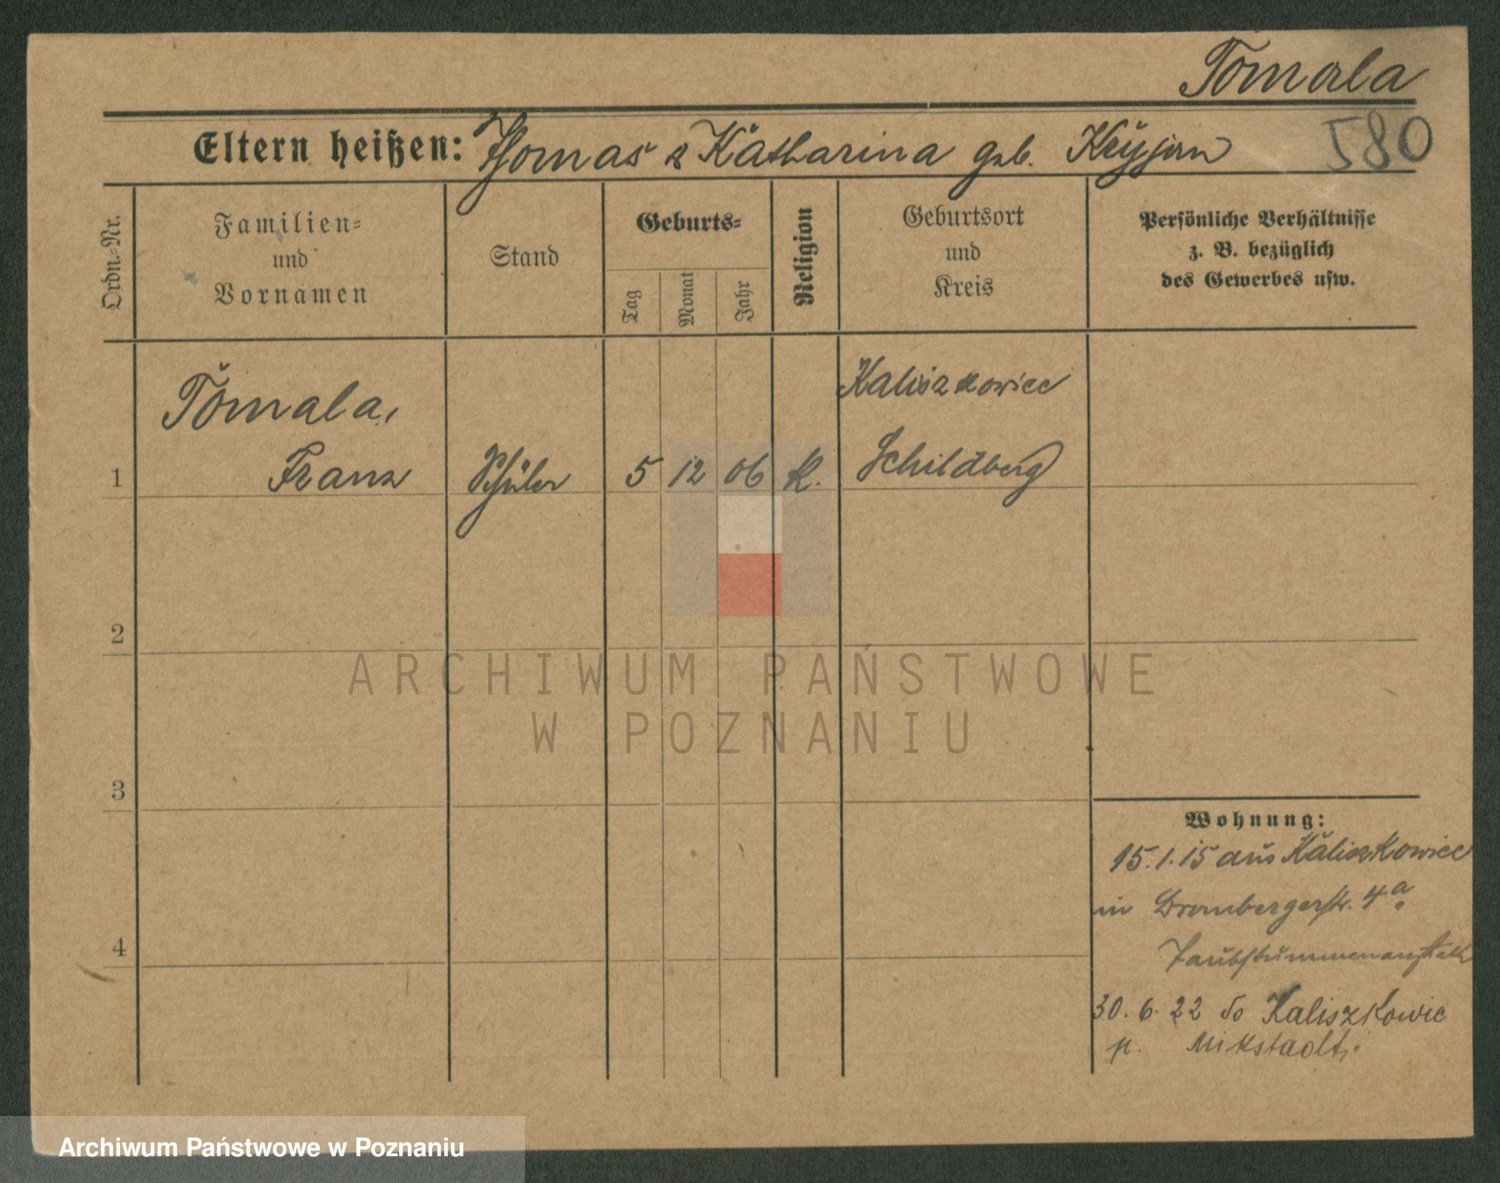 Tomala
580
Eltern heißen: Thomas & Katharina geb.
Ordn.-Nr.
Familien-
und
Vornamen
Stand
Geburts-
Tag
Monat
Jahr
Religion
Geburtsort
und
Kreis
Persönliche Verhältnisse
z. B. bezüglich
des Gewerbes usw.
Tomala,
Kaliszkowice
1 Franz Schüler 5 12 06 K. Schildberg
2
ARCHIWUM PAŃSTWOWE
W POZNANIU
3
Wohnung:
15.1.15 aus Kaliszkowice
in Brombergerstr. 4a
Taubstummenanstalt
4
30.6.22 do Kaliszkowic
p. Mikstadt.
Archiwum Państwowe w Poznaniu